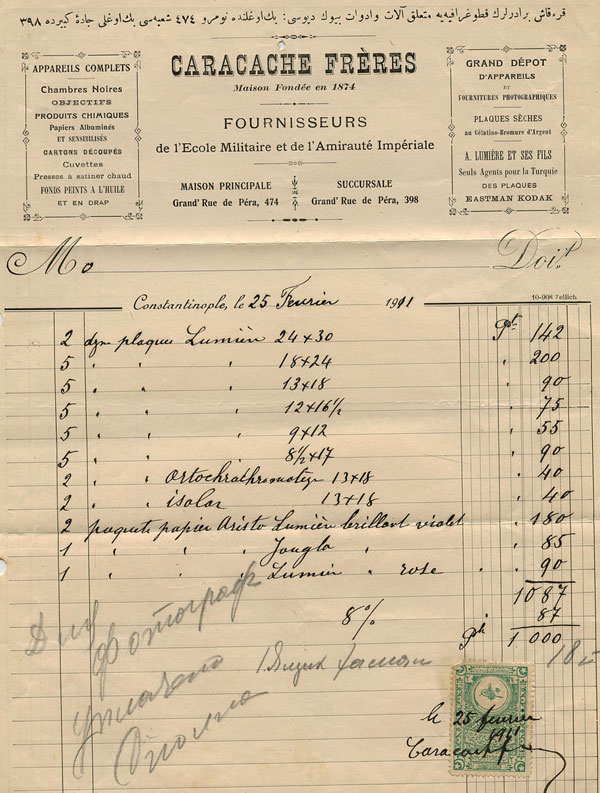 قره‌قاش برادرلرك فطوغرافیه‌یه متعلق آلات وادوات بیوك دپوسی: بك‌اوغلنده نومرو ٤٧٤ شعبه‌سی بك‌اوغلی جادهٔ كبیرده ٣٩٨
APPAREILS COMPLETS
Chambres Noires
OBJECTIFS
PRODUITS CHIMIQUES
Papiers Albuminés
ET SENSIBILISÉS
CARTONS DÉCOUPÉS
Cuvettes
Presses à satiner chaud
FONDS PEINTS A L'HUILE
ET EN DRAP
CARACACHE FRÈRES
Maison Fondée en 1874
FOURNISSEURS
de l'Ecole Militaire et de l'Amirauté Impériale
MAISON PRINCIPALE
Grand' Rue de Péra, 474
SUCCURSALE
Grand' Rue de Péra, 398
GRAND DÉPOT
D'APPAREILS
ET
FOURNITURES PHOTOGRAPHIQUES
PLAQUES SÈCHES
au Gélatino-Bromure d'Argent
A. LUMIÈRE ET SES FILS
Seuls Agents pour la Turquie
DES PLAQUES
EASTMAN KODAK
Mo Doit
10-908 Zellich
Constantinople, le 25 Fevrier 1911
2 dzn plaques Lumière 24×30 Pts 142
5 " " " 18×24 " 200
5 " " " 13×18 " 90
5 " " " 12×16½ " 75
5 " " " 9×12 " 55
5 " " " 8½×17 " 90
2 " " 13×18 " 40
2 " " isolar 13×18 " 40
2 paquets papier Aristo Lumière brillant violet " 180
1 " " " Jougla " " 85
1 " " " Lumière " rose " " 90
1087
8% 87
1000
Фотограф
le 25 fevrier
1911
Caracache